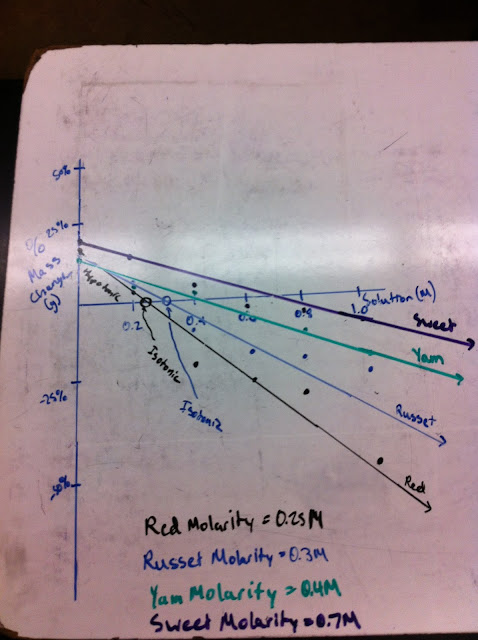 50%
% 25%
Mass
Change
(g)
Hypotonic
Solution (M)
0.2 0.4 0.6 0.8 1.0
Sweet
Yam
Isotonic
Isotonic
-25%
Russet
Red
-50%
Red Molarity = 0.25M
Russet Molarity = 0.3M
Yam Molarity = 0.4M
Sweet Molarity = 0.7M